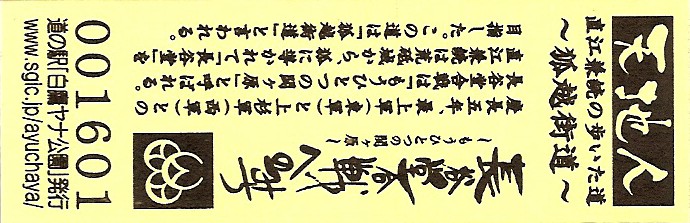 天地人
直江兼続の歩いた道
~狐越街道~
長谷堂合戦への
~もうひとつの関ヶ原~
慶長五年、最上軍(東軍)と上杉軍(西軍)との
長谷堂合戦は「もうひとつの関ヶ原」と呼ばれる。
直江兼続は荒砥城から、狐に導かれて「長谷堂」を
目指した。この道は「狐越街道」と言われる。
001601
道の駅「白鷹ヤナ公園」発行
www.sgic.jp/ayuchaya/